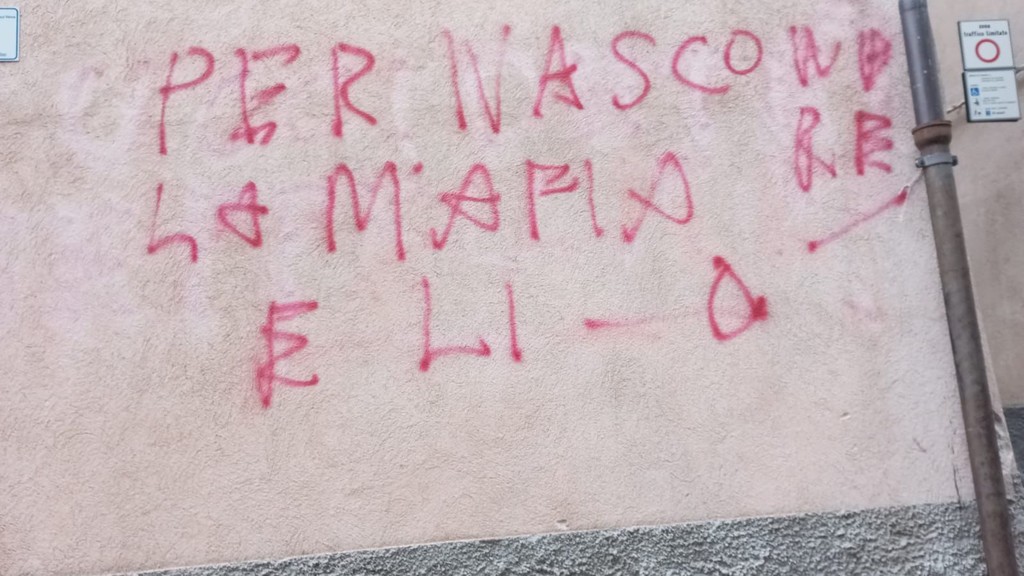 PER NASCOND
RE
LA MAFIA
E LI - O
ZONA
traffico limitato